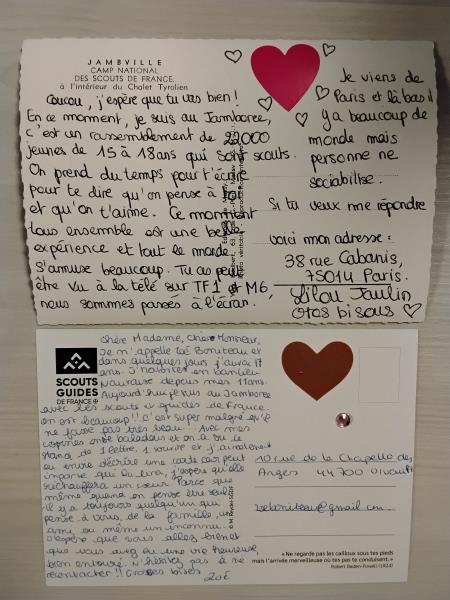 JAMBVILLE
CAMP NATIONAL
DES SCOUTS DE FRANCE.
à l'intérieur du Chalet Tyrolien
Coucou, j'espère que tu vas bien !
En ce moment, je suis au Jamboree,
c'est un rassemblement de 22000
jeunes de 15 à 18ans qui sont scouts.
On prend du temps pour t'écrire
pour te dire qu'on pense à toi
et qu'on t'aime. Ce moment
tous ensemble est une belle
expérience et tout le monde
s'amuse beaucoup. Tu as peut
être vu à la télé sur TF1 et M6
nous sommes passés à l'écran.
Je viens de
Paris et là bas il
y a beaucoup de
monde mais
personne ne
sociabilise.
Si tu veux me répondre
voici mon adresse :
38 rue Cabanis,
75014 Paris.
Lilou Jaulin
Gros bisous
SCOUTS
GUIDES
DE FRANCE
Chère Madame, Cher Monsieur,
Je m'appelle Zoé Boniteau et
dans quelques jours j'aurai 17
ans. J'habite en banlieu
Nantaise depuis mes 11ans.
Aujourd'hui je suis au Jamboree
avec les scouts et guides de France.
on est beaucoup !! C'est super malgré qu'il
ne fasse pas très beau... Avec mes
copines on se baladait et on a vu le
stand de 1 lettre, 1 sourire et j'aime
écrire une carte car peut
importe qui la lira, j'espère qu'elle
réchauffera un cœur. Parce que
même quand on pense être seul
il y a toujours quelqu'un qui
pense à vous, de la famille, un
ami ou même un inconnu.
J'espère que vous allez bien et
que vous avez eu une vie heureuse,
bien entouré. N'hésitez pas à me
recontacter !! Grosses bises
Zoé
10 rue de la Chapelle des
Anges 44700
@gmail.com
« Ne regarde pas les cailloux sous tes pieds
mais l'arrivée merveilleuse où tes pas te conduisent. »
Robert Baden-Powell (1924)